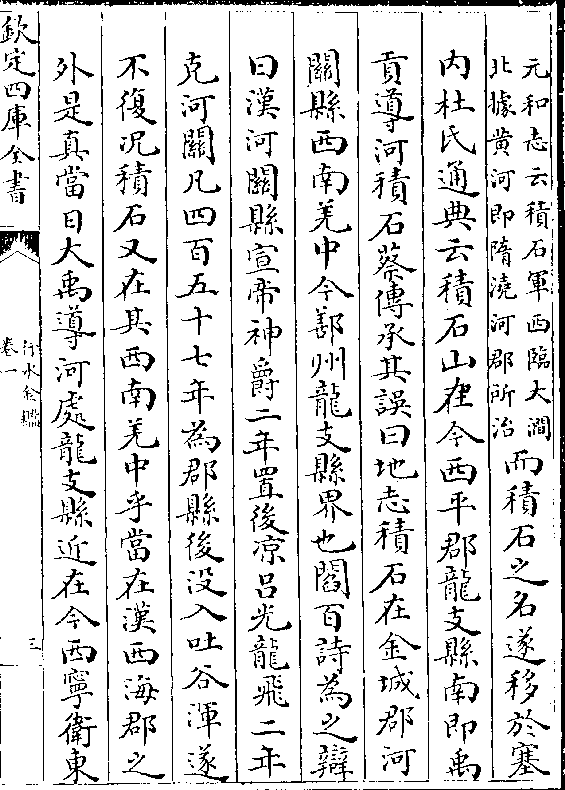 元和志云積石軍西臨大澗
北據黄河即隋澆河郡所治
而積石之名遂移於塞
内杜氏通典云積石山在今西平郡龍支縣南即禹
貢導河積石蔡傳承其誤曰地志積石在金城郡河
關縣西南羌中今鄯州龍支縣界也閻百詩為之辯
曰漢河關縣宣帝神爵二年置後凉呂光龍飛二年
克河關凡四百五十七年為郡縣後没入吐谷渾遂
不復况積石又在其西南羌中乎當在漢西海郡之
外是真當日大禹導河處龍支縣近在今西寧衛東
欽定四庫全書
行水金鑑
卷一
三